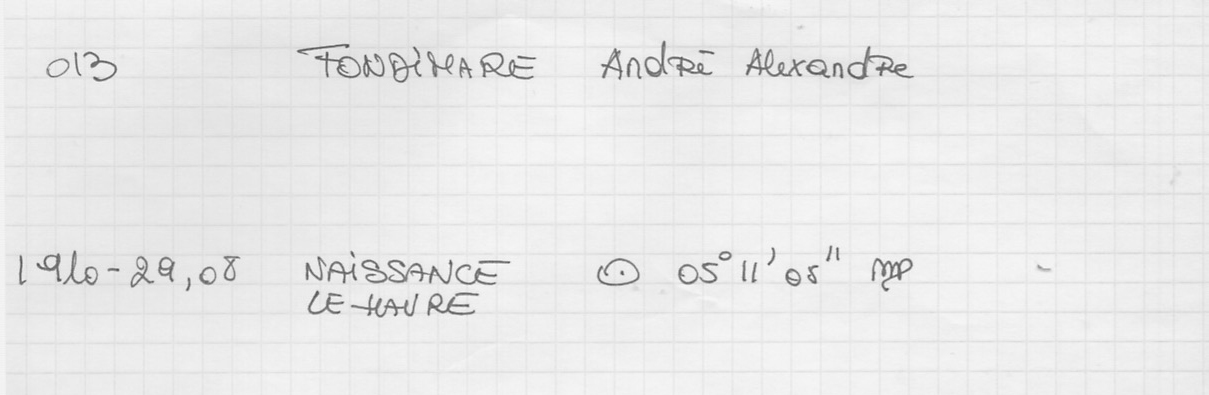 013 FONDIMARE André Alexandre
1910-29,08 NAISSANCE ☉ 05° 11' 05" ♍
LE HAVRE